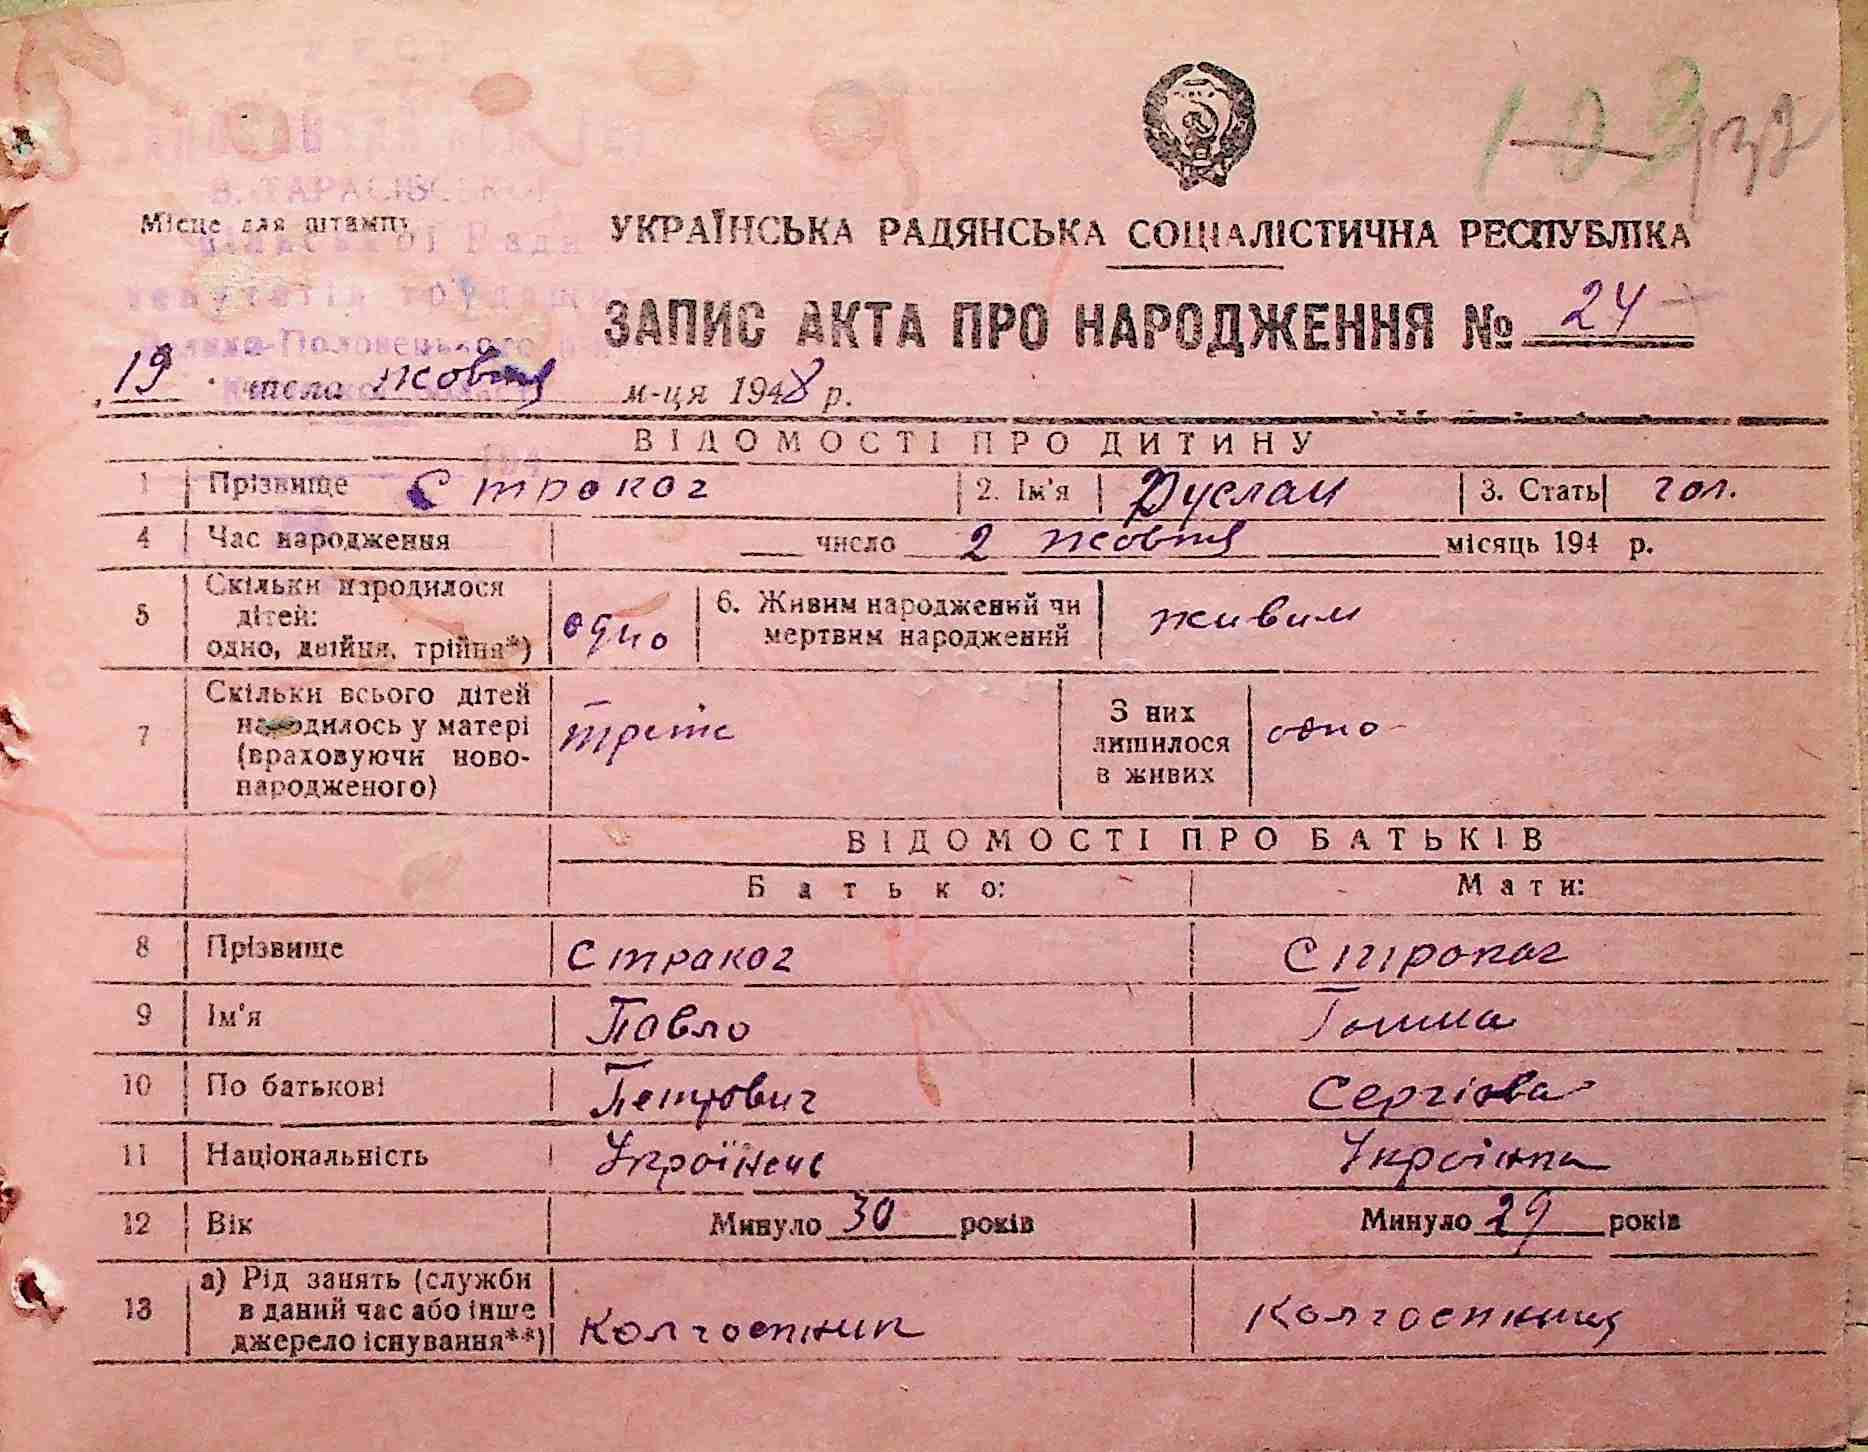 В. ТАРАСІВСЬКОЇ
Місце для штампу
сільської Ради
депутатів трудящих
Велико-Половецького
УКРАЇНСЬКА РАДЯНСЬКА СОЦІАЛІСТИЧНА РЕСПУБЛІКА
ЗАПИС АКТА ПРО НАРОДЖЕННЯ № 24
19 числа жовтня м-ця 1948 р.
ВІДОМОСТІ ПРО ДИТИНУ
1 Прізвище Строког 2. Ім'я Руслан 3. Стать чол.
4 Час народження число 2 жовтня місяць 194 р.
5 Скільки народилося
дітей:
одно, двійня, трійня*) одно 6. Живим народжений чи
мертвим народжений живим
7 Скільки всього дітей
народилось у матері
(враховуючи ново-
народженого) третє З них
лишилося
в живих одно
ВІДОМОСТІ ПРО БАТЬКІВ
Батько: Мати:
8 Прізвище Страког Строког
9 Ім'я Павло Ганна
10 По батькові Петрович Сергіївна
11 Національність Українець Українка
12 Вік Минуло 30 років Минуло 29 років
13 а) Рід занять (служби
в даний час або інше
джерело існування**) Колгоспник Колгоспниця